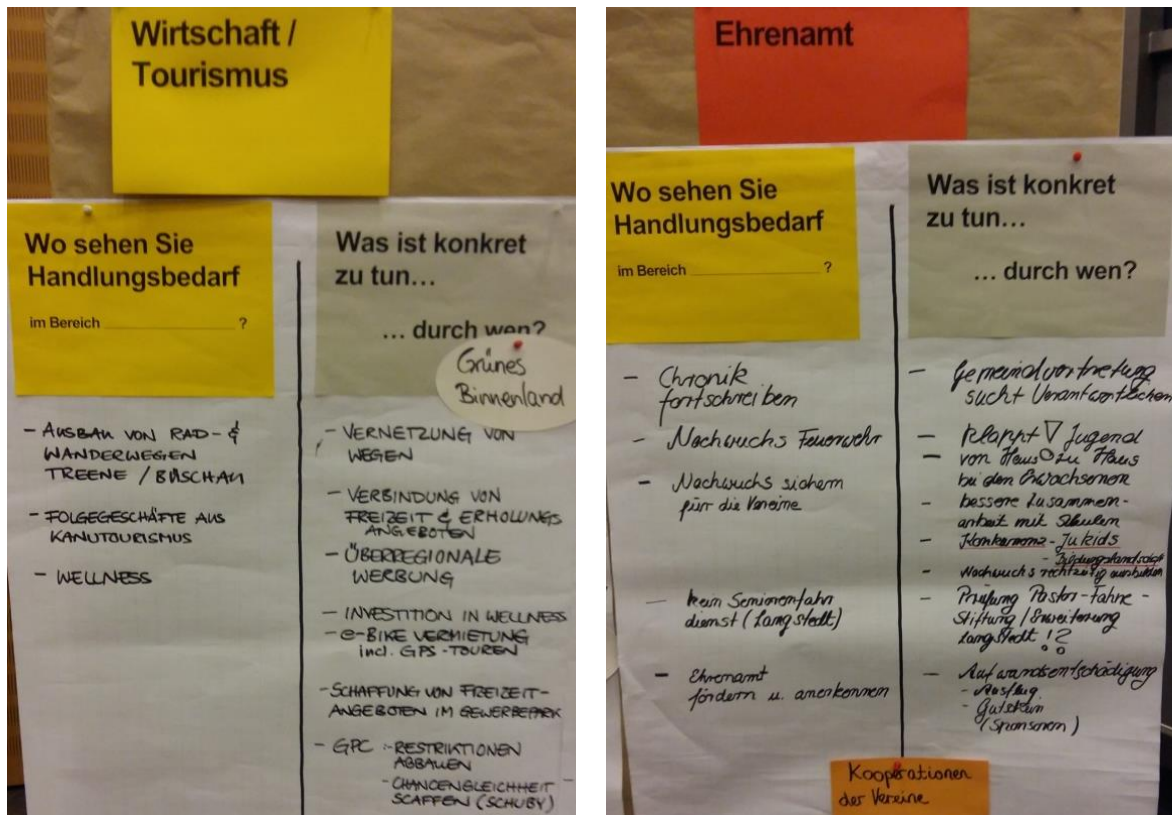 Wirtschaft /
Tourismus
Wo sehen Sie
Handlungsbedarf
im Bereich ____________________ ?
Was ist konkret
zu tun...
... durch wen?
Grünes
Binnenland
- AUSBAU VON RAD- &
WANDERWEGEN
TREENE /
- FOLGEGESCHÄFTE AUS
KANUTOURISMUS
- WELLNESS
- VERNETZUNG VON
WEGEN
- VERBINDUNG VON
FREIZEIT & ERHOLUNGS
ANGEBOTEN
- ÜBERREGIONALE
WERBUNG
- INVESTITION IN WELLNESS
- e-BIKE VERMIETUNG
incl. GPS-TOUREN
- SCHAFFUNG VON FREIZEIT-
ANGEBOTEN IM GEWERBEPARK
- GPC :- RESTRIKTIONEN
ABBAUEN
- CHANCENGLEICHHEIT
SCAFFEN (SCHUBY)
Ehrenamt
Wo sehen Sie
Handlungsbedarf
im Bereich ____________________ ?
Was ist konkret
zu tun...
... durch wen?
- Chronik
fortschreiben
- Nachwuchs Feuerwehr
- Nachwuchs sichern
für die Vereine
- kein Seniorenfahr
dienst (Langstedt)
- Ehrenamt
fördern u. anerkennen
- Gemeindvertretung
sucht Verantwortlichen
- Klappt Jugend
- von Haus zu Haus
bei den Erwachsenen
- bessere Zusammen-
arbeit mit Schulen
- Konkurrenz - Jukids
- Bildungslandschaft
- Nachwuchs rechtzeitig ausbilden
- Prüfung Pastor-Fahne-
Stiftung / Erweiterung
Langstedt !?
- Aufwandsentschädigung
- Ausflug
- Gutschein
(Sponsoren)
Kooperationen
der Vereine